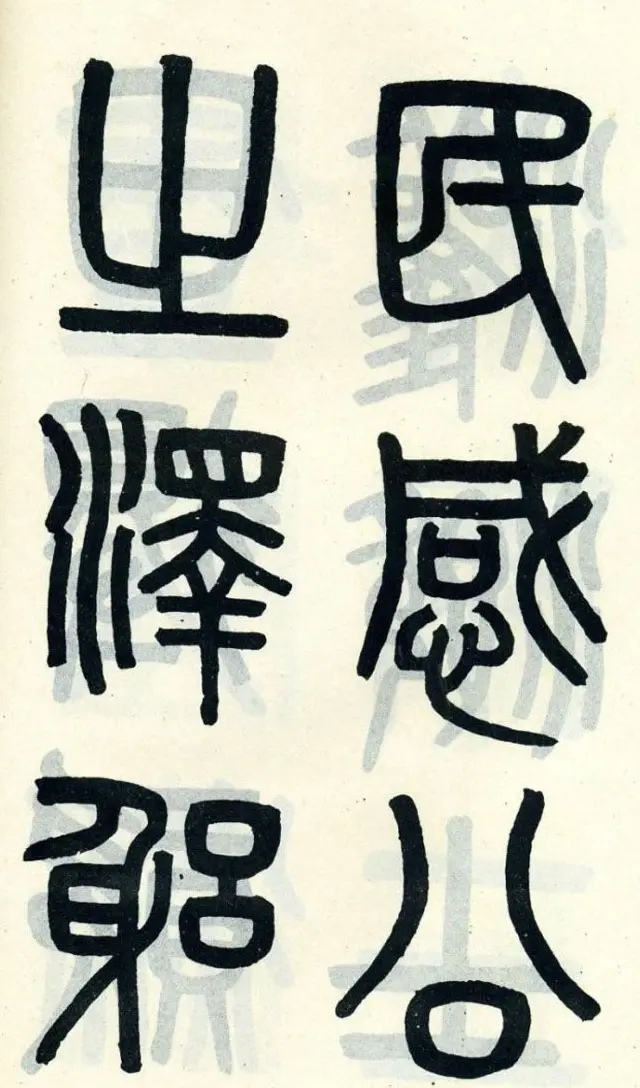 民感公
之澤躳